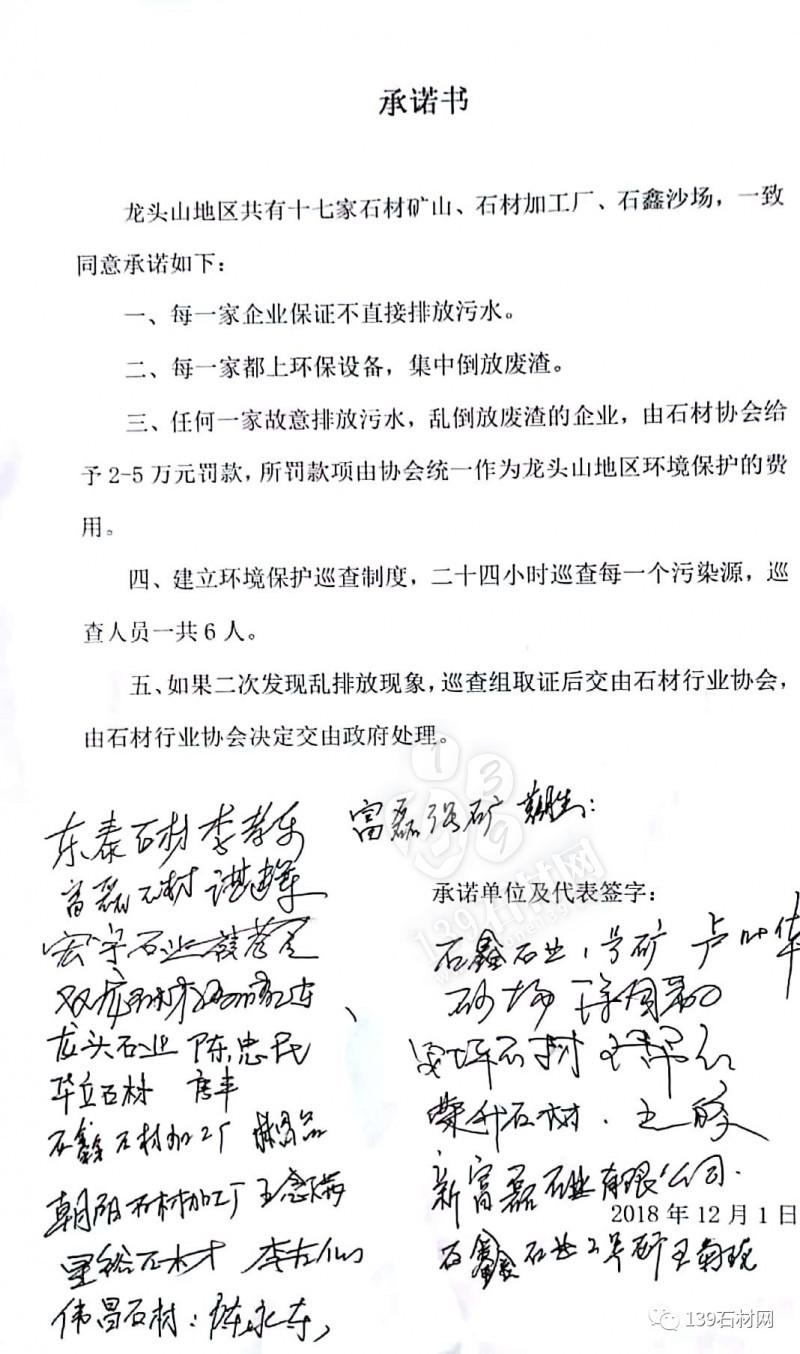 承诺书
龙头山地区共有十七家石材矿山、石材加工厂、石鑫沙场，一致
同意承诺如下：
一、每一家企业保证不直接排放污水。
二、每一家都上环保设备，集中倒放废渣。
三、任何一家故意排放污水，乱倒放废渣的企业，由石材协会给
予 2-5 万元罚款，所罚款项由协会统一作为龙头山地区环境保护的费
用。
四、建立环境保护巡查制度，二十四小时巡查每一个污染源，巡
查人员一共 6 人。
五、如果二次发现乱排放现象，巡查组取证后交由石材行业协会，
由石材行业协会决定交由政府处理。
富磊强矿
东泰石材
富磊石材
宏宇石业
龙头石业 陈忠民
华立石材 唐丰
石鑫石材加工厂
朝阳石材加工厂
石材
伟昌石材：陈永存
承诺单位及代表签字：
石鑫石业1号矿
砂场
石材
荣升石材
新富磊石业有限公司
2018 年 12 月 1 日
石鑫石业2号矿
139石材网
139石材网